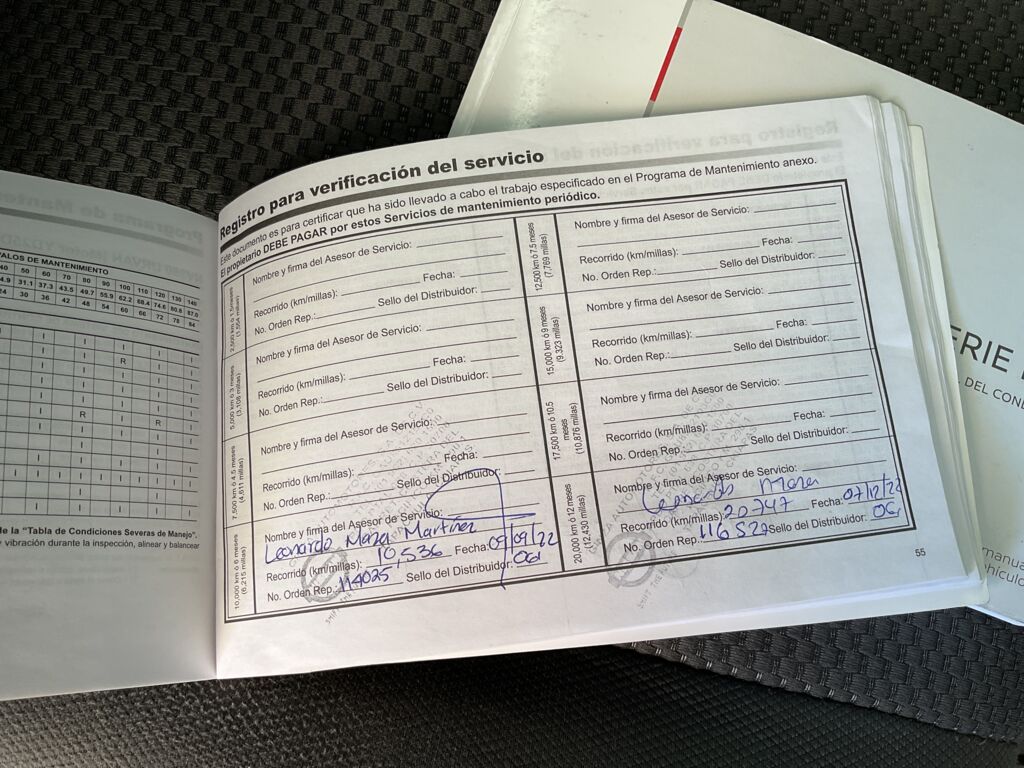 Registro para verificación del servicio
Este documento es para certificar que ha sido llevado a cabo el trabajo especificado en el Programa de Mantenimiento anexo.
El propietario DEBE PAGAR por estos Servicios de mantenimiento periódico.
2,500 km ó 1.5 meses
(1,554 millas)
Nombre y firma del Asesor de Servicio:
Recorrido (km/millas): Fecha:
No. Orden Rep.: Sello del Distribuidor:
5,000 km ó 3 meses
(3,108 millas)
Nombre y firma del Asesor de Servicio:
Recorrido (km/millas): Fecha:
No. Orden Rep.: Sello del Distribuidor:
7,500 km ó 4.5 meses
(4,611 millas)
Nombre y firma del Asesor de Servicio:
Recorrido (km/millas): Fecha:
No. Orden Rep.: Sello del Distribuidor:
10,000 km ó 6 meses
(6,215 millas)
Nombre y firma del Asesor de Servicio:
Leonardo Maza Martínez
Recorrido (km/millas): 10,536 Fecha: 09/09/22
No. Orden Rep.: 114025 Sello del Distribuidor: 06
12,500 km ó 7.5 meses
(7,769 millas)
Nombre y firma del Asesor de Servicio:
Recorrido (km/millas): Fecha:
No. Orden Rep.: Sello del Distribuidor:
15,000 km ó 9 meses
(9,323 millas)
Nombre y firma del Asesor de Servicio:
Recorrido (km/millas): Fecha:
No. Orden Rep.: Sello del Distribuidor:
17,500 km ó 10.5
meses
(10,876 millas)
Nombre y firma del Asesor de Servicio:
Recorrido (km/millas): Fecha:
No. Orden Rep.: Sello del Distribuidor:
20,000 km ó 12 meses
(12,430 millas)
Nombre y firma del Asesor de Servicio:
Leonardo Maza
Recorrido (km/millas): 20747 Fecha: 07/12/22
No. Orden Rep.: 116527 Sello del Distribuidor: 06
55
ALOS DE MANTENIMIENTO
40 50 60 70 80 90 100 110 120 130 140
31.1 37.3 43.5 49.7 55.9 62.2 68.4 74.6 80.8 87.0
24 30 36 42 48 54 60 66 72 78 84
de la "Tabla de Condiciones Severas de Manejo".
e vibración durante la inspección, alinear y balancear
ERIE
DEL COND
manua